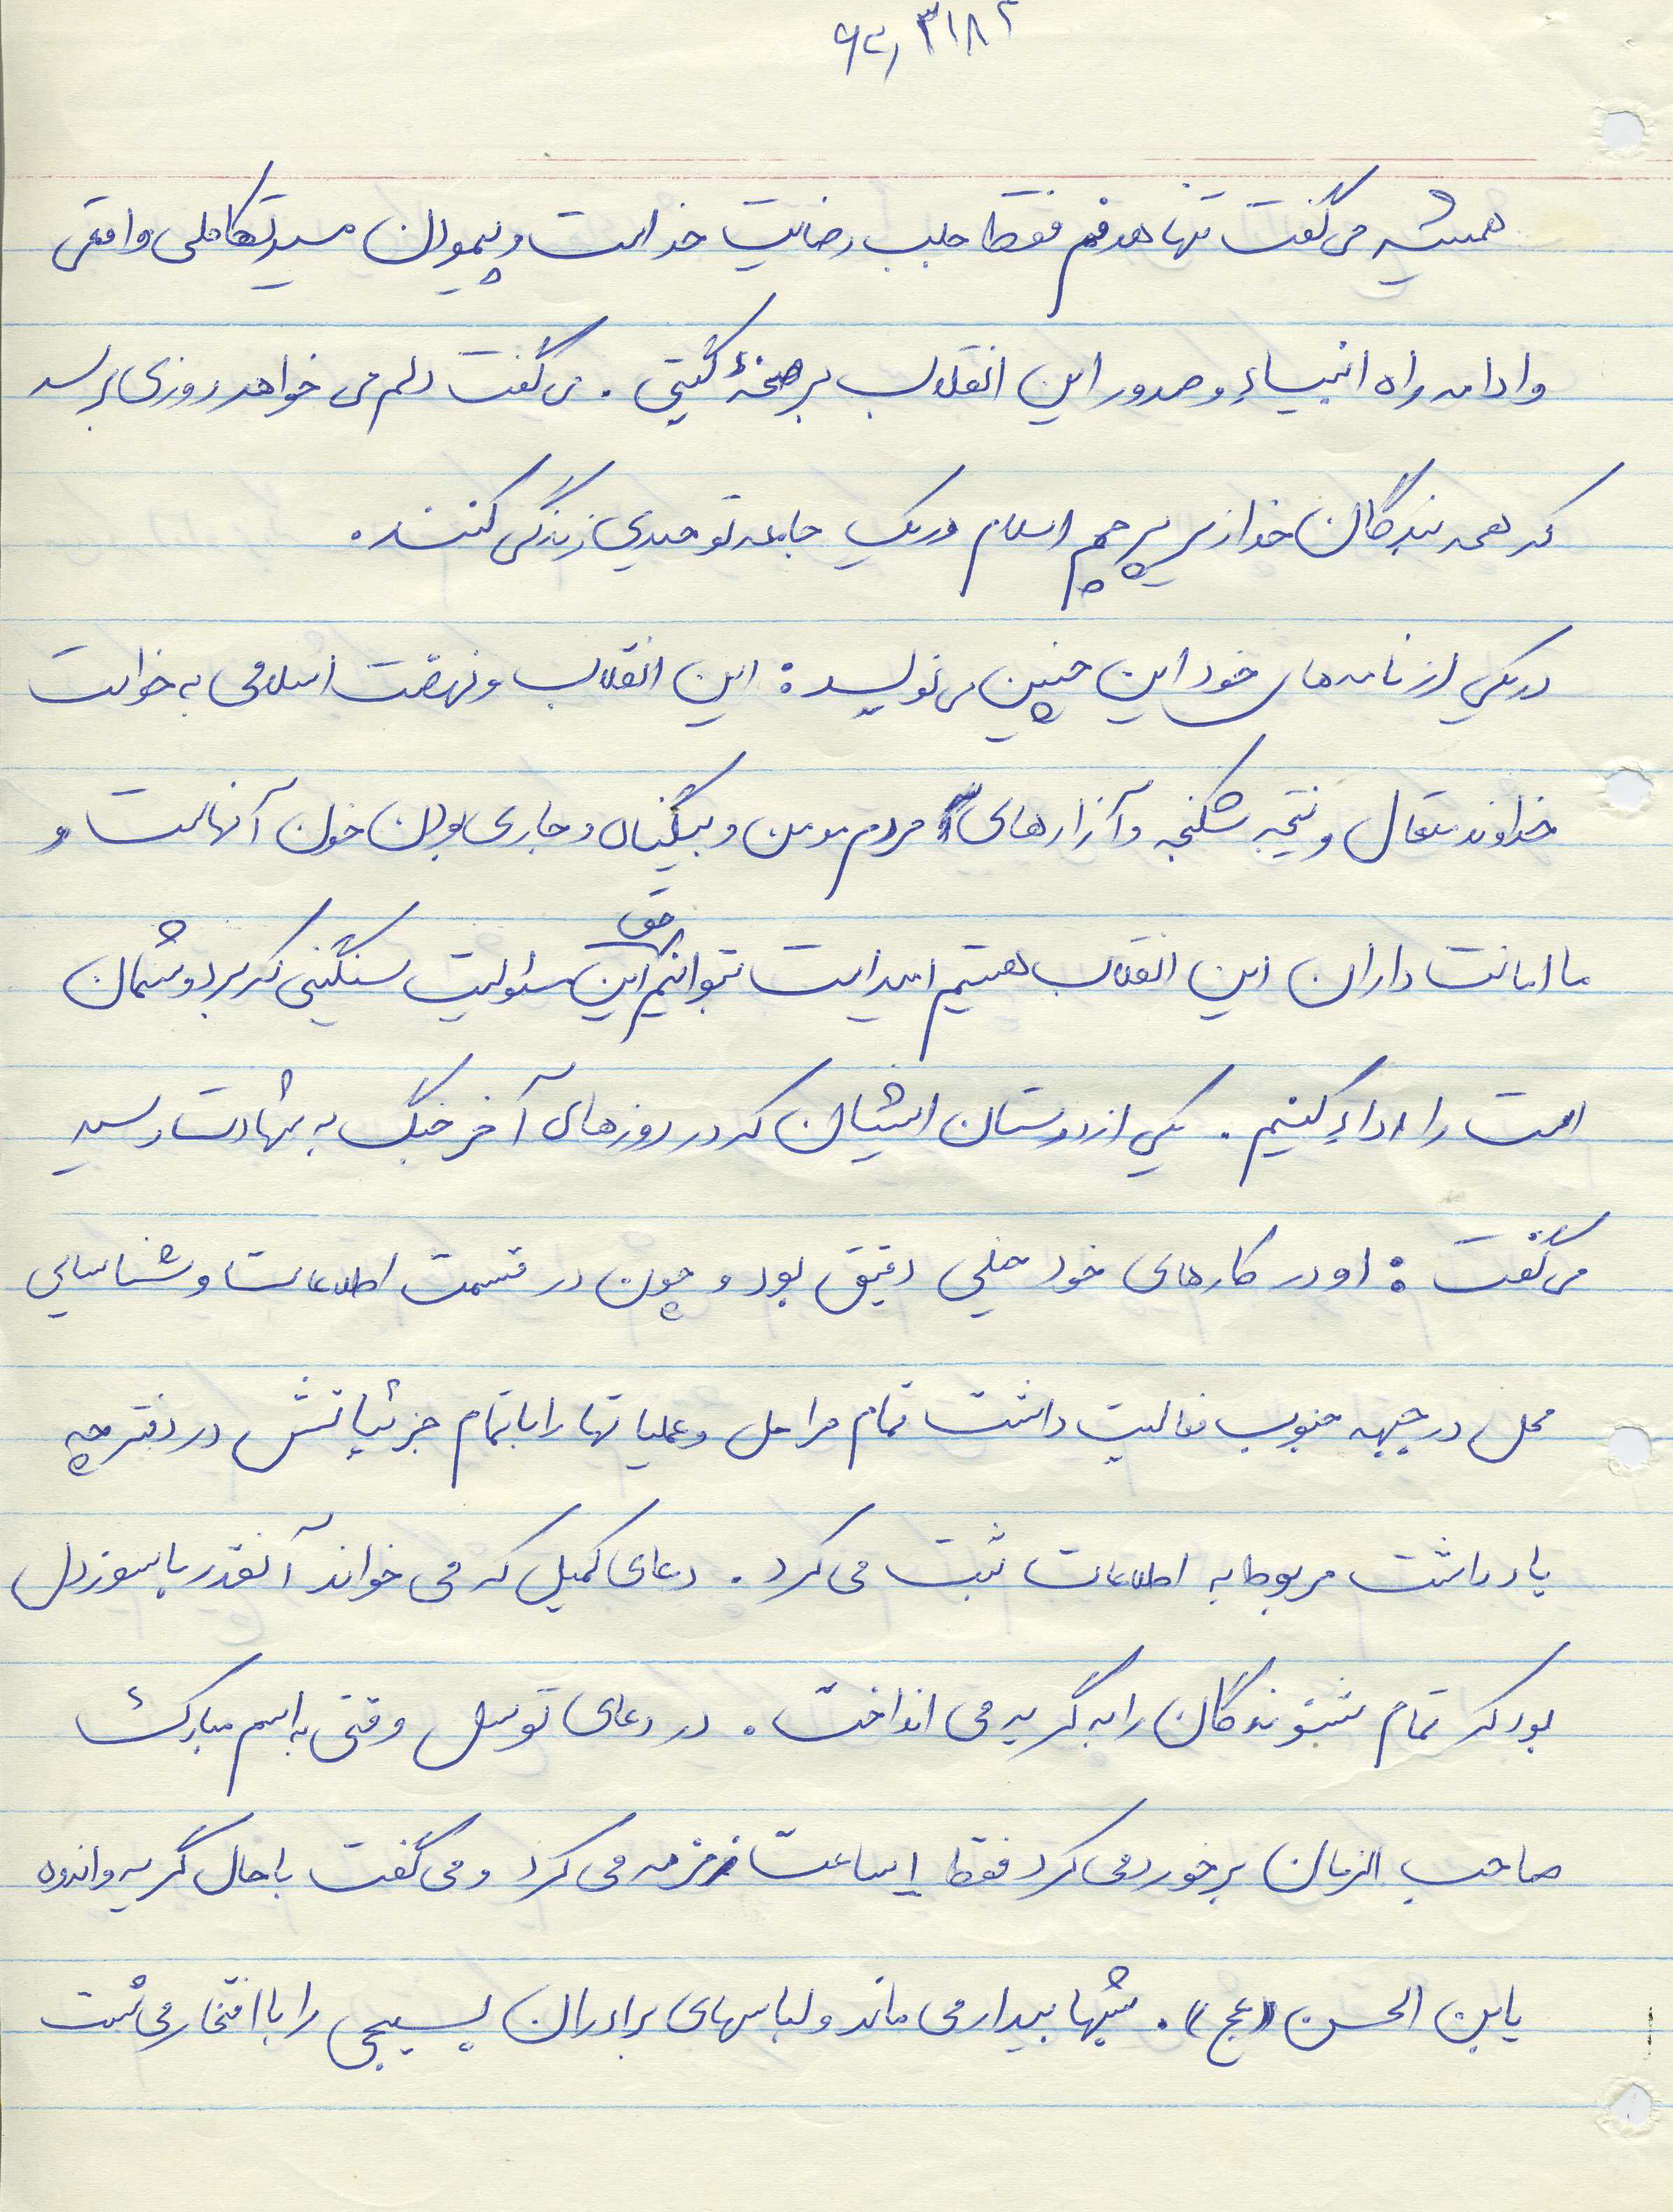 ۳۱۸۲
همیشه می گفت تنها هدفم فقط جلب رضایت خداست و پیمودن مسیر تکاملی واقعی
و ادامه راه انبیاء و صدور این انقلاب بر صحنهٔ گیتی . می گفت دلم می خواهد روزی برسد
که همه بندگان خدا زیر پرچم اسلام در یک جامعه توحیدی زندگی کنند .
در یکی از نامه های خود این چنین می نویسد : این انقلاب و نهضت اسلامی به خواست
خداوند متعال و نتیجه شکنجه و آزارهای مردم مومن و بیگناه و جاری بودن خون آنهاست و
ما امانت داران این انقلاب هستیم امید است بتوانیم حق این مسئولیت سنگینی که بر دوشمان
است را اداء کنیم . یکی از دوستان ایشان که در روزهای آخر جنگ به شهادت رسید
می گفت : او در کارهای خود خیلی دقیق بود و چون در قسمت اطلاعات و شناسایی
محل در جبهه جنوب فعالیت داشت تمام مراحل و عملیاتها را با تمام جزئیاتش در دفترچه
یادداشت مربوط به اطلاعات ثبت می کرد . دعای کمیل که می خواند آنقدر با سوز دل
بود که تمام شنوندگان را به گریه می انداخت . در دعای توسل وقتی به اسم مبارک
صاحب الزمان برخورد می کرد فقط ۱ ساعت زمزمه می کرد و می گفت با حال گریه و اندوه
یابن الحسن (عج) . شبها بیدار می ماند و لباسهای برادران بسیجی را با افتخار می شست